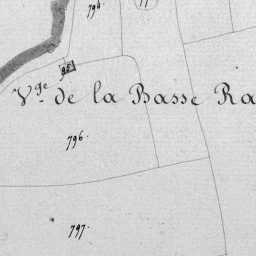 794
11
95
Vge de la Basse Ra
796.
797.